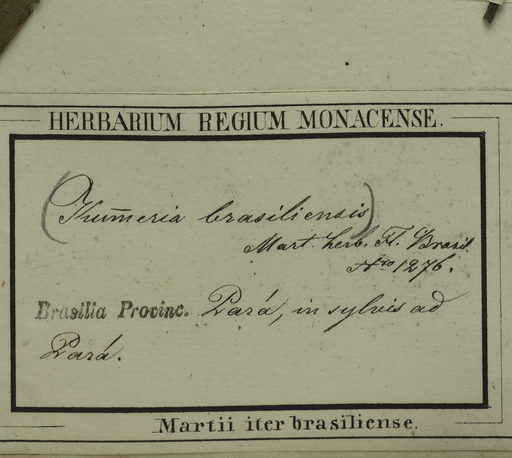 HERBARIUM REGIUM MONACENSE.
(Kum̅eria brasiliensis)
Mart. herb. Fl. Brasil.
Nro 1276.
Brasilia Provinc. Pará, in sylvis ad
Pará.
Martii iter brasiliense.